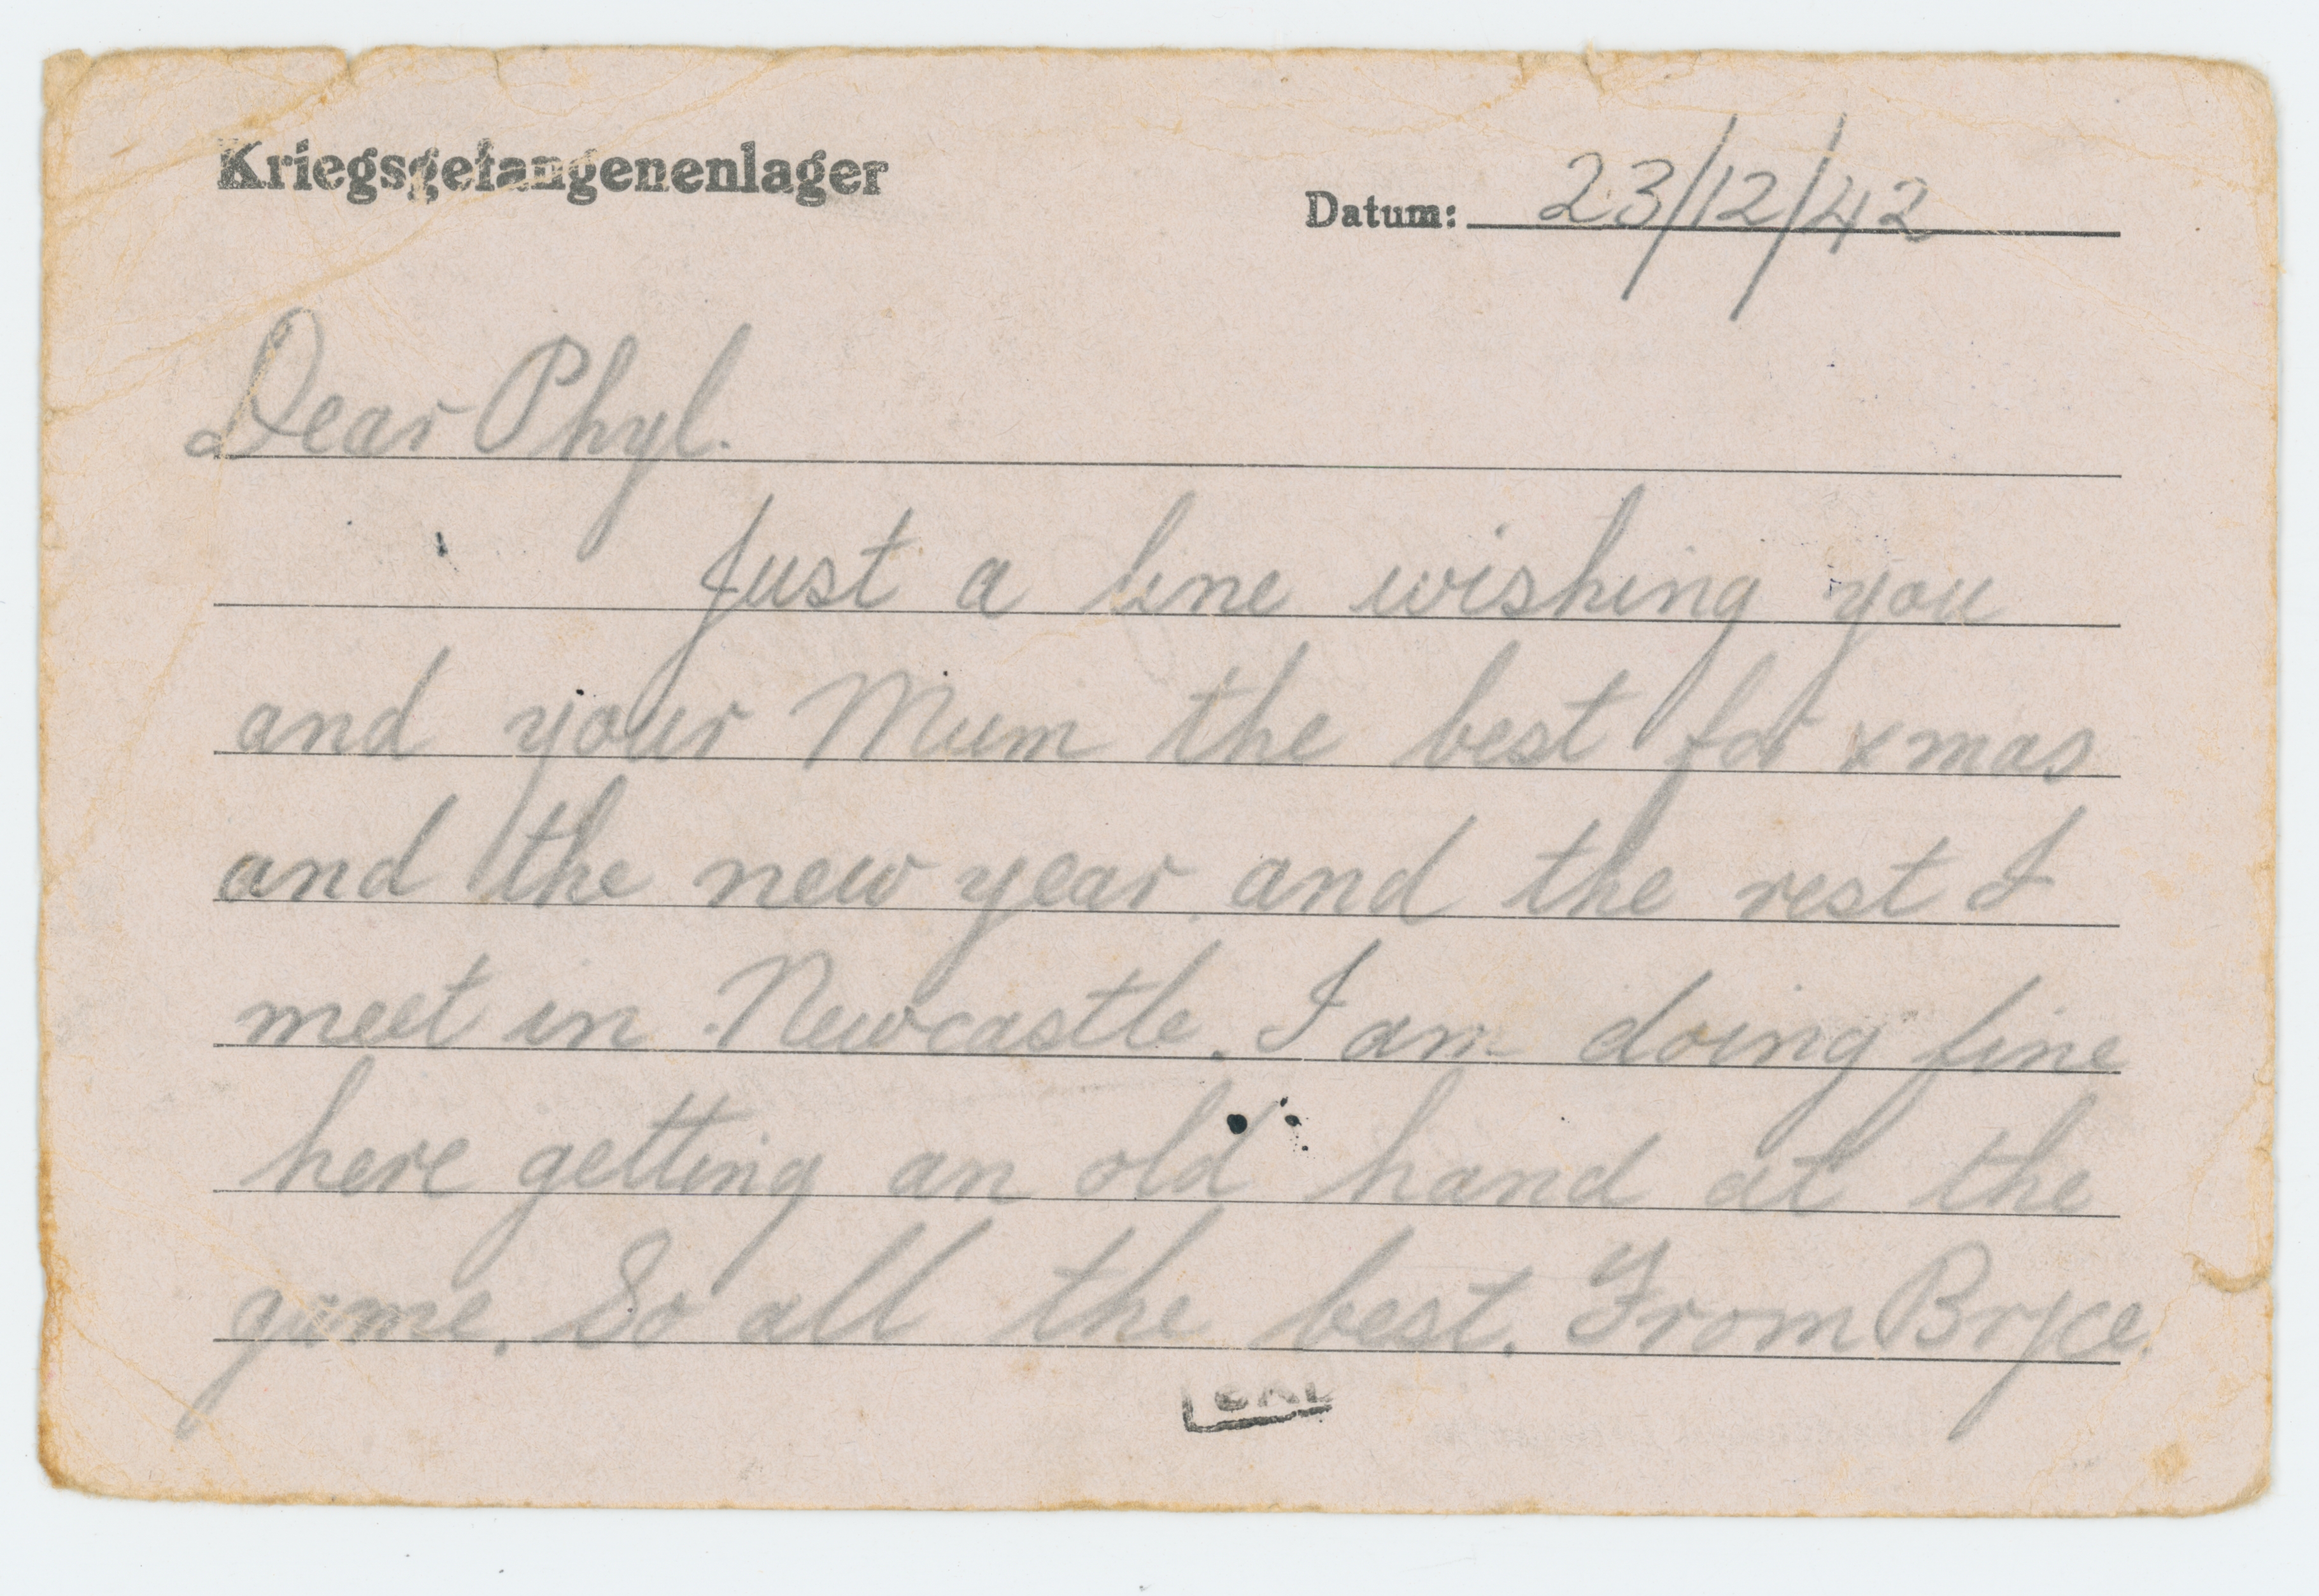 Kriegsgefangenenlager
Datum: 23/12/42
Dear Phyl.
Just a line wishing you
and your Mum the best for xmas
and the new year and the rest I
meet in Newcastle. I am doing fine
here getting an old hand at the
game. So all the best. From Bryce.